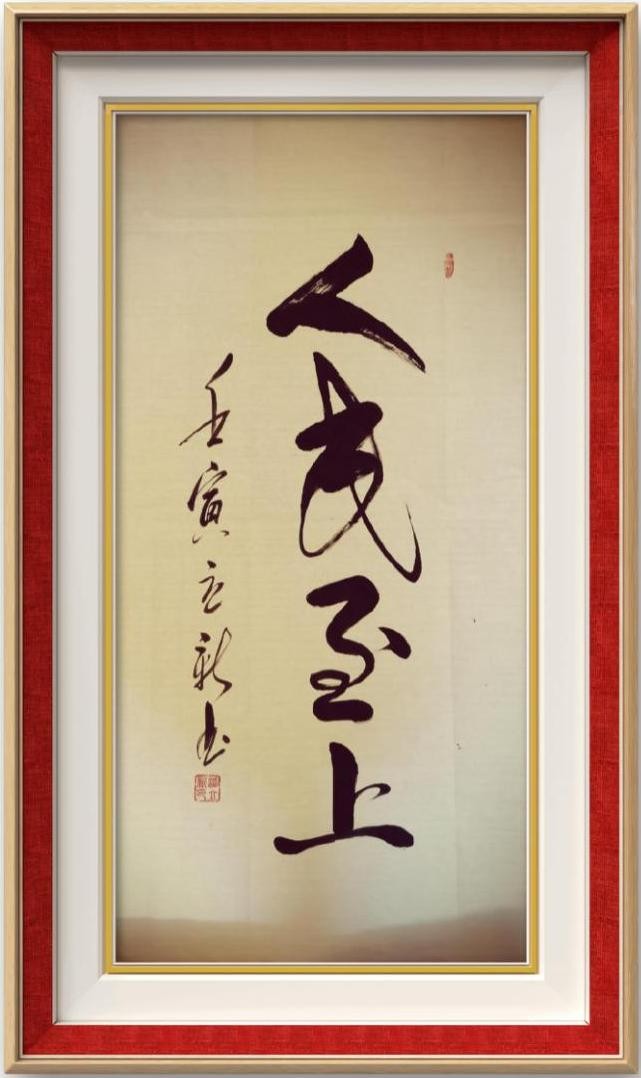 人民至上
壬寅立新书